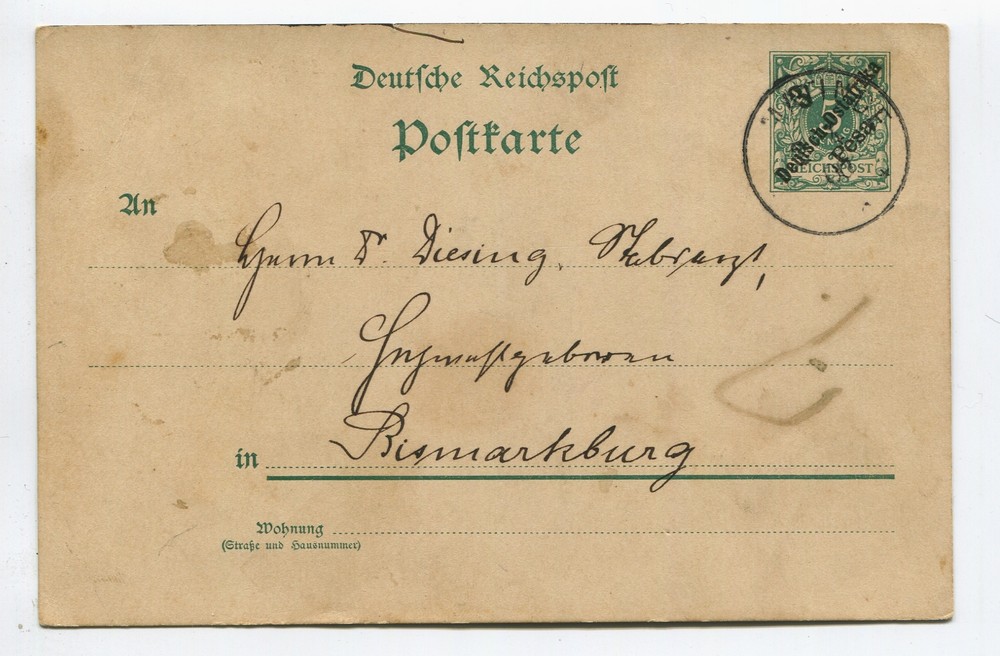 Deutsche Reichspost
Postkarte
3
5
Deutsch-Ostafrika
Pesa
REICHSPOST
An
Herrn Dr. Diesing, Stabsarzt,
Hochwohlgeboren
in Bismarkburg
Wohnung
(Straße und Hausnummer)